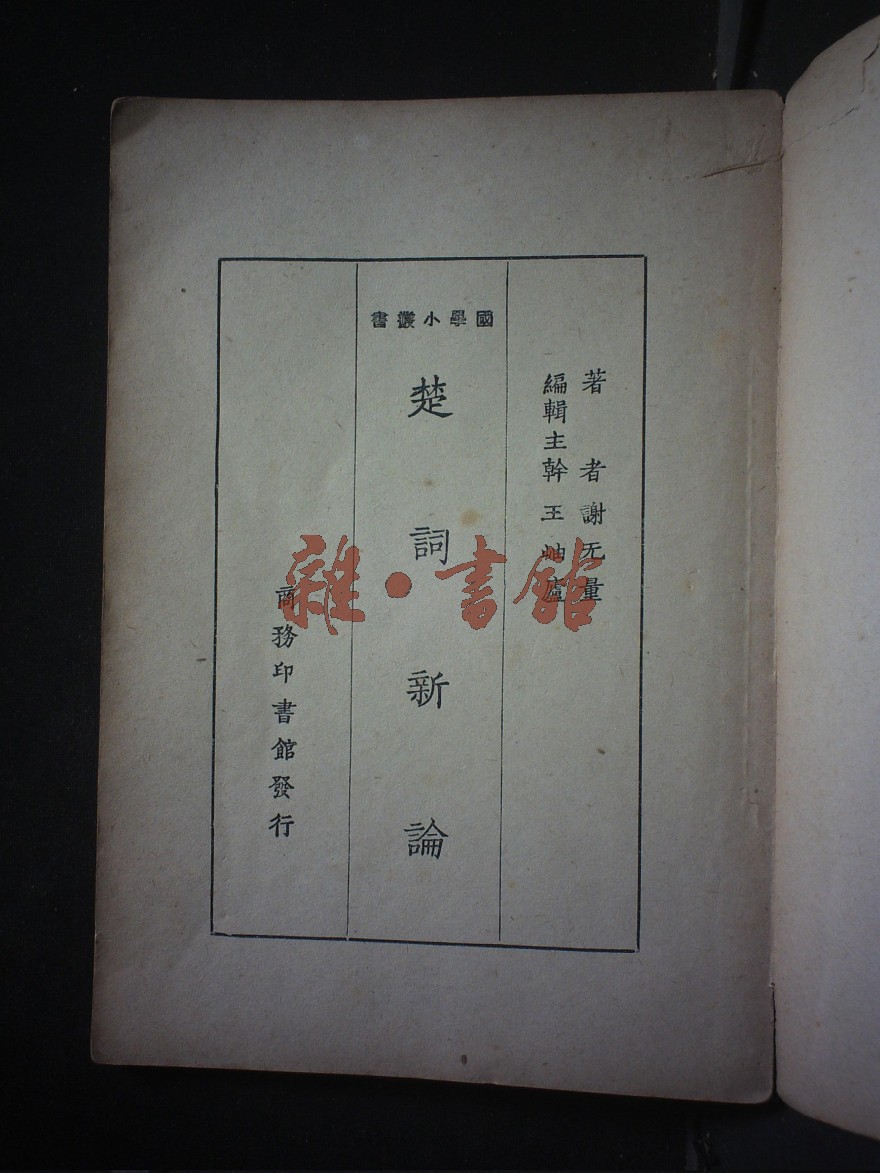 著者謝无量
編輯主幹王岫廬
國學小叢書
楚詞新論
商務印書館發行
雜·書館